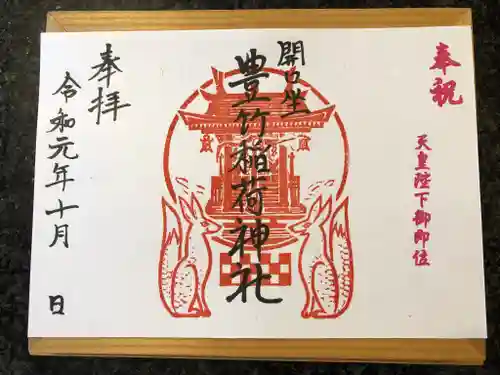 奉祝
天皇陛下御即位
開口坐
豊竹稲荷神社
奉拝
令和元年十月 日